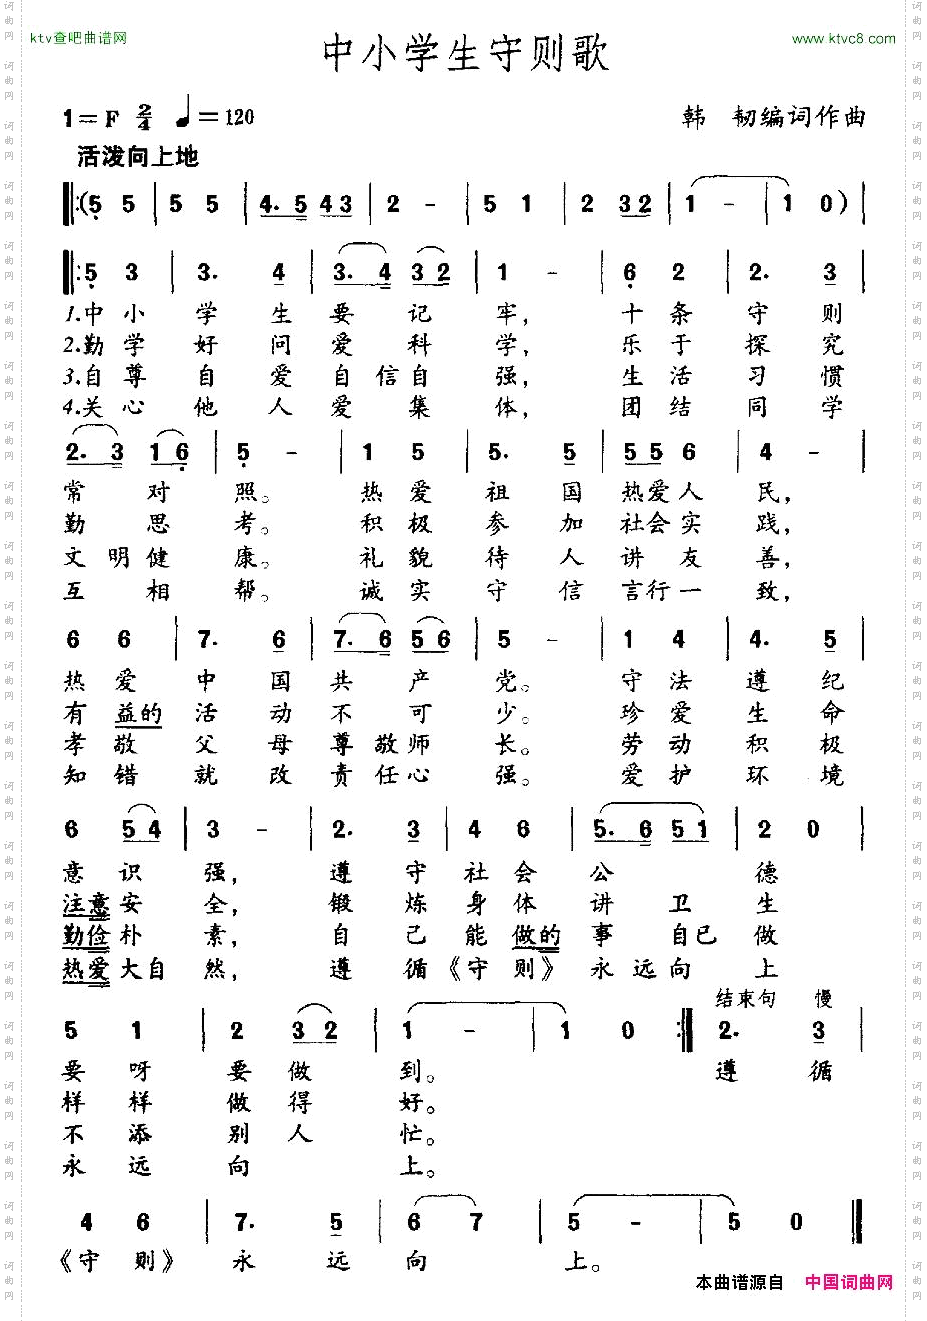 ktv查吧曲谱网
www.ktvc8.com
中小学生守则歌
1=F 2/4 ♩=120
韩 韧编词作曲
活泼向上地
‖:(5 5 | 5 5 | 4. 5 43 | 2 - | 5 1 | 2 32 | 1 - | 1 0) |
‖:5 3 | 3. 4 | 3. 4 32 | 1 - | 6 2 | 2. 3 |
1.中小学生要记牢,十条守则
2.勤学好问爱科学,乐于探究
3.自尊自爱自信自强,生活习惯
4.关心他人爱集体,团结同学
2. 3 16 | 5 - | 1 5 | 5. 5 | 55 6 | 4 - |
常对照。热爱祖国热爱人民,
勤思考。积极参加社会实践,
文明健康。礼貌待人讲友善,
互相帮。诚实守信言行一致,
6 6 | 7. 6 | 7. 6 56 | 5 - | 1 4 | 4. 5 |
热爱中国共产党。守法遵纪
有益的活动不可少。珍爱生命
孝敬父母尊敬师长。劳动积极
知错就改责任心强。爱护环境
6 54 | 3 - | 2. 3 | 4 6 | 5. 6 51 | 2 0 |
意识强,遵守社会公德
注意安全,锻炼身体讲卫生
勤俭朴素,自己能做的事自己做
热爱大自然,遵循《守则》永远向上
结束句 慢
5 1 | 2 32 | 1 - | 1 0 :‖ 2. 3 |
要呀要做到。遵循
样样做得好。
不添别人忙。
永远向上。
4 6 | 7. 5 | 6 7 | 5 - | 5 0 ‖
《守则》永远向上。
本曲谱源自 中国词曲网